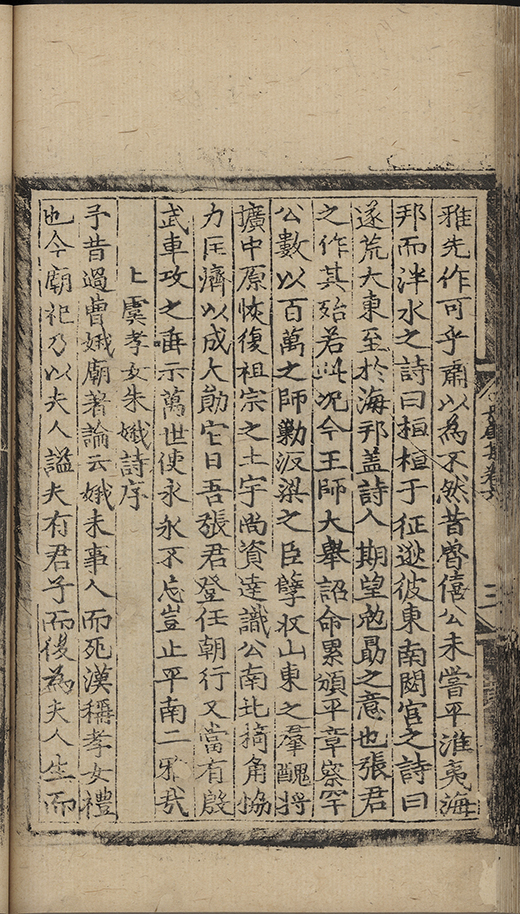 雅先作可乎肅以為不然昔魯僖公未嘗平淮夷海
邦而泮水之詩曰桓桓于征逖彼東南閟宮之詩曰
遂荒大東至於海邦盖詩人期望勉勗之意也張君
之作其殆若此况今王師大舉詔命累頒平章察罕
公數以百萬之師勦汳梁之臣孽収山東之羣醜捋
擴中原恢復祖宗之土宇尚資達識公南北掎角恊
力匡濟以成大勛它日吾張君登任朝行又當有殷
武車攻之垂示萬世使永永不忘豈止平南二雅哉
上虞孝女朱娥詩序
予昔過曹娥廟著論云娥未事人而死漢稱孝女禮
也今廟祀乃以夫人謚夫有君子而後為夫人生而